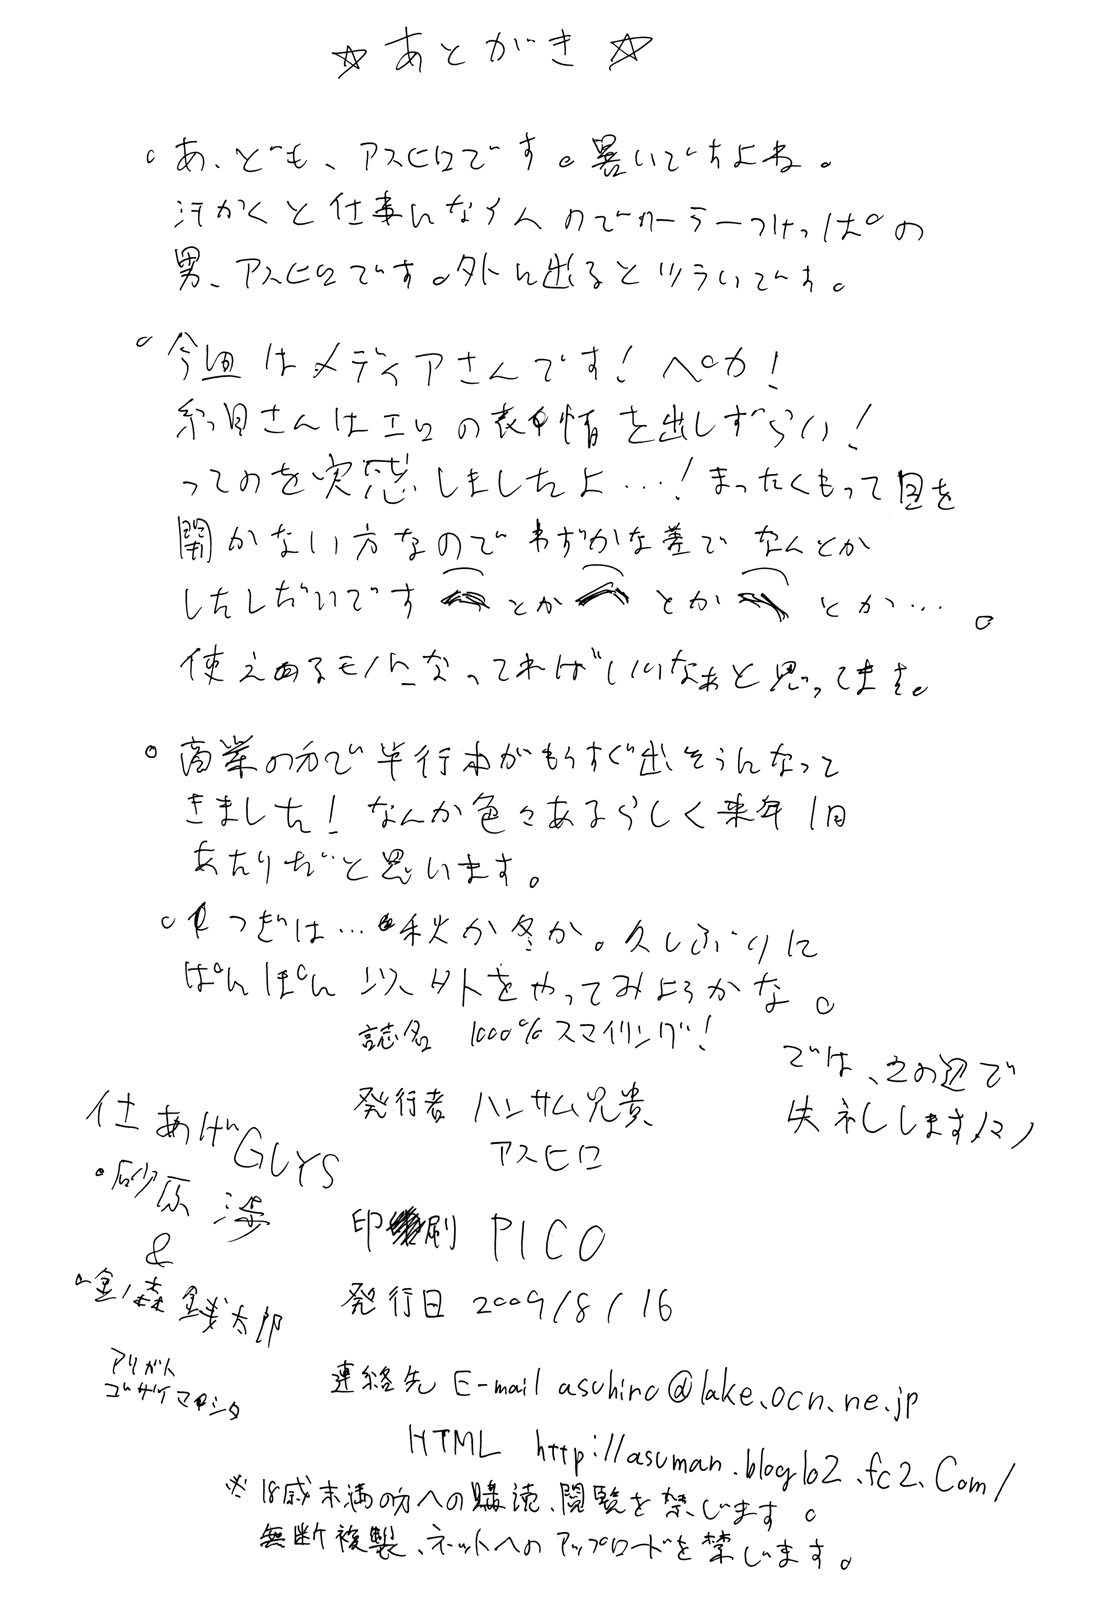 ☆あとがき☆
。あ、ども、アスヒロです。暑いですよね。
汗かくと仕事になイんのでクーラーつけっぱの
男、アスヒロです。外に出るとツラいです。
。今回はメディアさんです！ペカ！
糸目さんはエロの表情を出しずらい！
ってのを実感しましたよ…！まったくもって目を
開かない方なのでわずかな差でなんとか
したしだいです とか とか とか…。
使えあるモノになってればいいなぁと思ってます。
。商業の方で単行本がもうすぐ出そうになって
きました！なんか色々あるらしく来年1月
あたりだと思います。
。つぎは…秋か冬か。久しぶりに
ぱんぽん以外をやってみようかな。
では、この辺で
失礼しますノシ
誌名 1000%スマイリング！
発行者 ハンサム兄貴
アスヒロ
印刷 PICO
発行日 2009/8/16
連絡先 E-mail asuhiro@lake.ocn.ne.jp
HTML http://asuman.blog102.fc2.Com/
※18歳未満の方への購読、閲覧を禁じます。
無断複製、ネットへのアップロードを禁じます。
仕あげGUYS
・砂原 渉
&
・金ノ森 銭太郎
アリガト
ゴザイマシタ